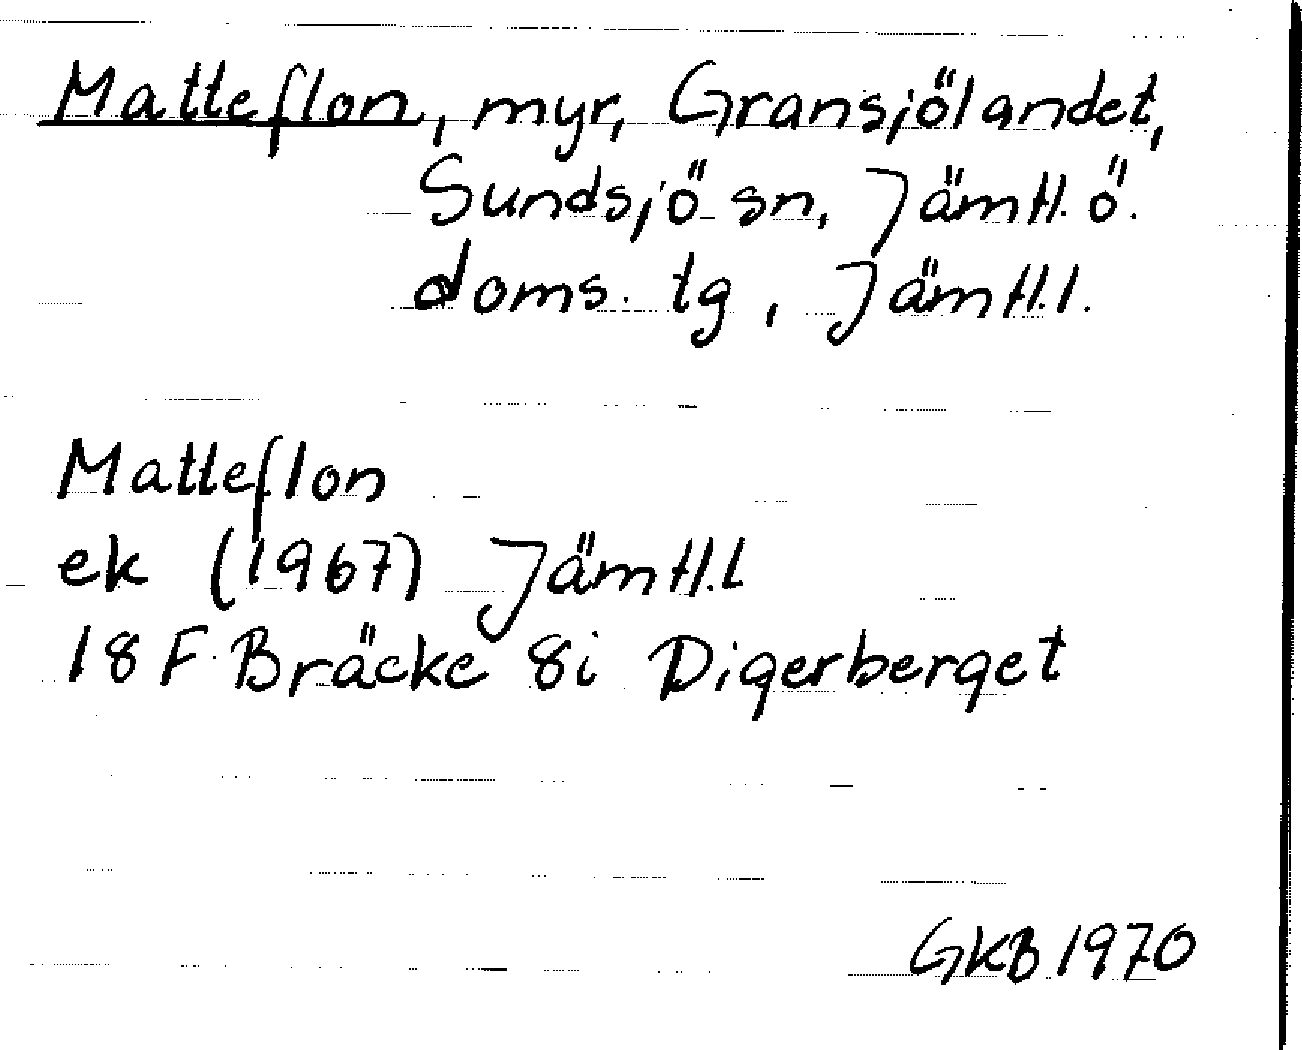 Matteflon, myr, Gransjölandet,
Sundsjö sn, Jämtl. ö.
doms. tg, Jämtl. l.
Matteflon
ek (1967) Jämtl. l
18 F Bräcke 8i Digerberget
GKB 1970